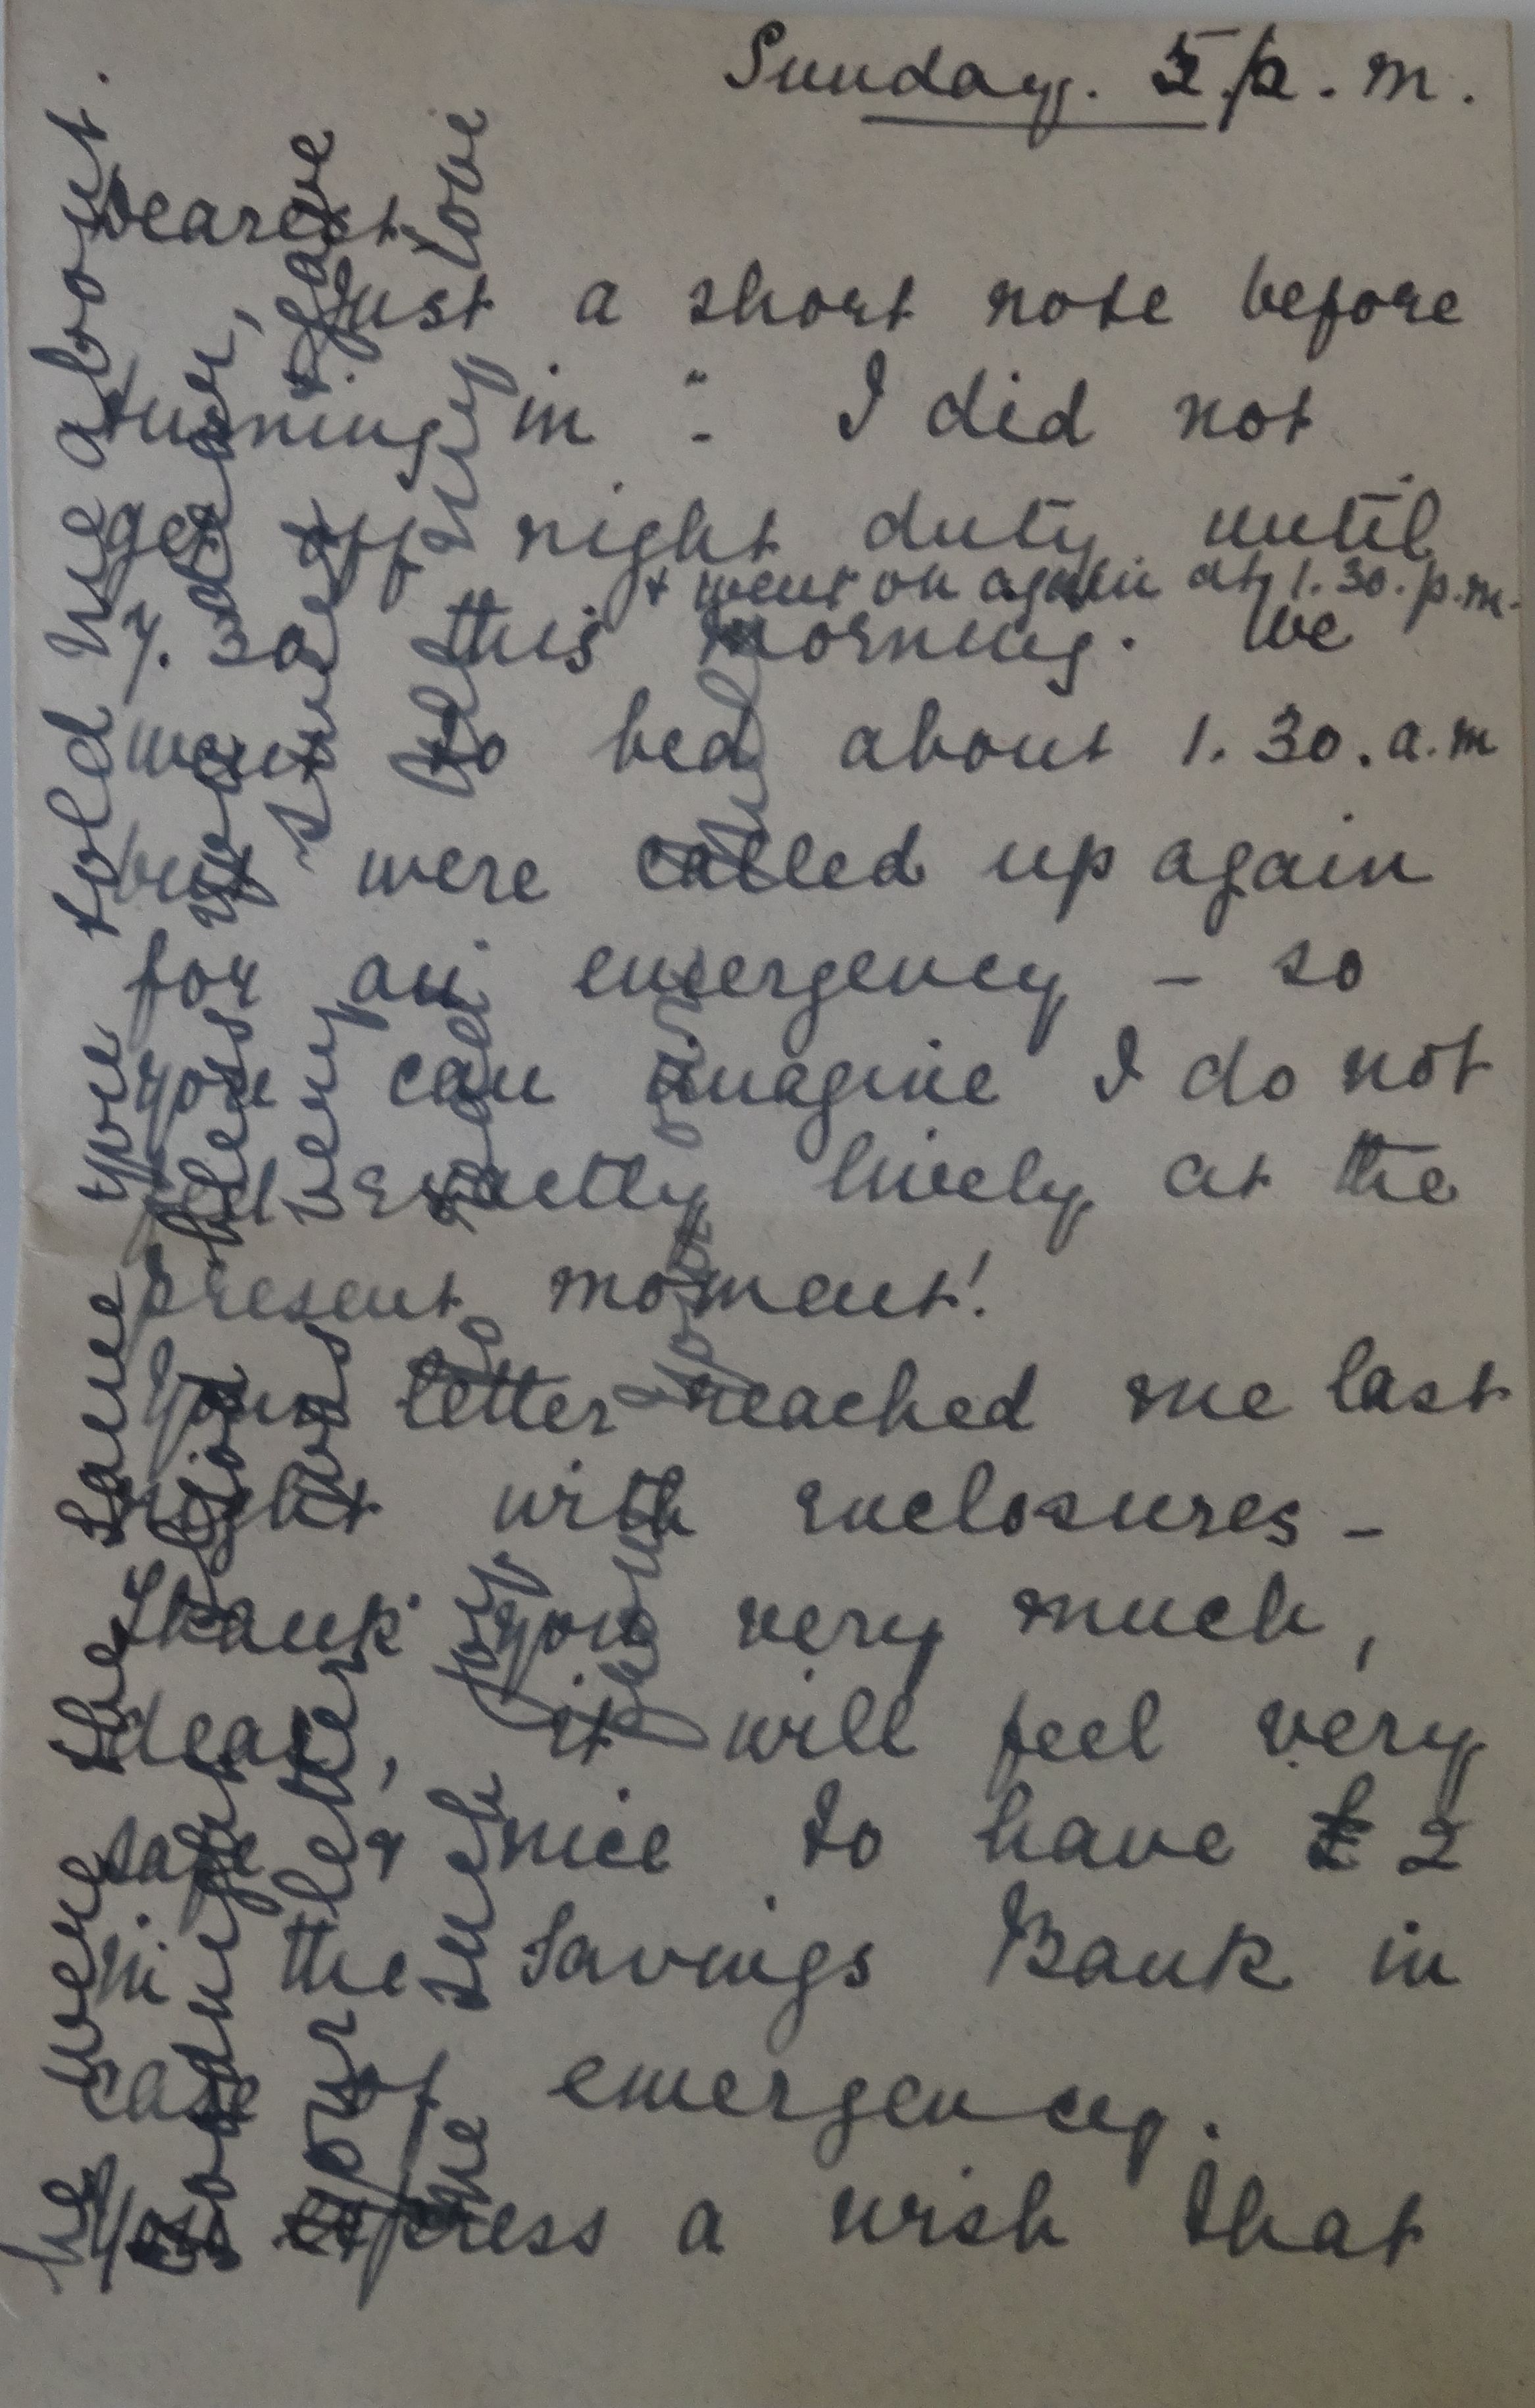 Sunday. 5 p.m.
Dearest
Just a short note before
turning in". I did not
get off night duty until
+ went on again at 1.30.p.m.
7.30 this morning. We
went to bed about 1.30.a.m
but were called up again
for an emergency - so
you can imagine I do not
feel exactly lively at the
present moment!
Your letter reached me last
night with enclosures -
Thank you very much,
dear, it will feel very
safe & nice to have £2
in the Savings Bank in
case of emergency.
You express a wish that
he were the same you told me about.
Goodnight bless you dear,
your letter was very sweet & gave
me such joy. All my love
your